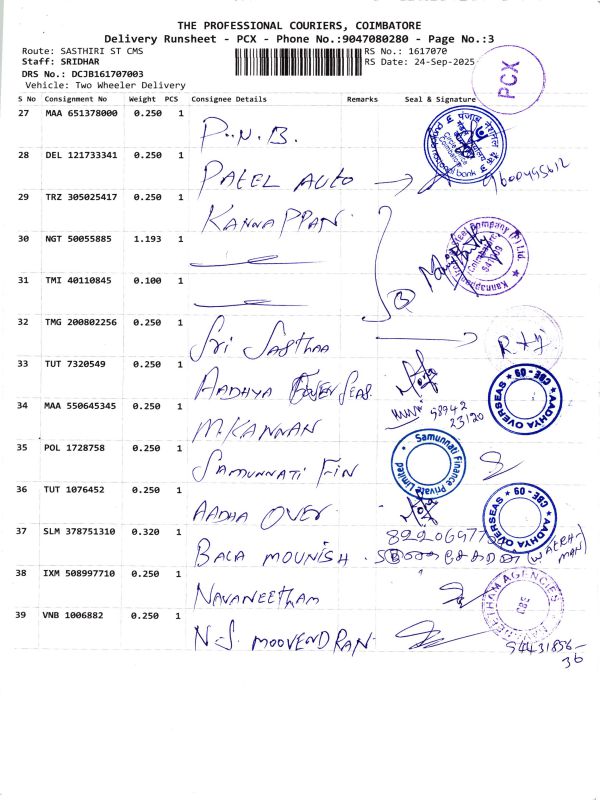 THE PROFESSIONAL COURIERS, COIMBATORE
Delivery Runsheet - PCX - Phone No.:9047080280 - Page No.:3
Route: SASTHIRI ST CMS RS No.: 1617070
Staff: SRIDHAR RS Date: 24-Sep-2025
DRS No.: DCJB161707003
Vehicle: Two Wheeler Delivery
PCX
S No Consignment No Weight PCS Consignee Details Remarks Seal & Signature
27 MAA 651378000 0.250 1 P.N.B.
28 DEL 121733341 0.250 1 PATEL AUTO 9600495612
29 TRZ 305025417 0.250 1 KANNAPPAN
30 NGT 50055885 1.193 1
31 TMI 40110845 0.100 1
32 TMG 200802256 0.250 1 Sri Sasthaa
33 TUT 7320549 0.250 1 AADHYA AADHYA OVERSEAS CBE - 09
34 MAA 550645345 0.250 1 M.KANNAN 98942 23120
35 POL 1728758 0.250 1 SAMUNNATI FIN Samunnati Finance Private Limited
36 TUT 1076452 0.250 1 AADHA OVER AADHYA OVERSEAS CBE - 09
37 SLM 378751310 0.320 1 BALA MOUNISH
38 IXM 508997710 0.250 1 NAVANEETHAM AGENCIES CBE
39 VNB 1006882 0.250 1 N.S. MOOVENDRAN 9443185636